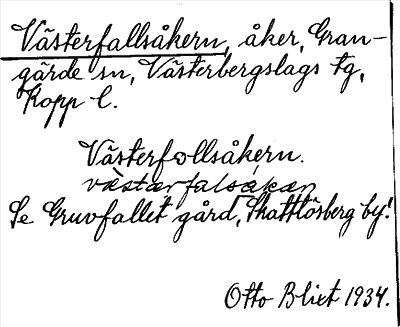 Västerfallsåkern, åker, Gran-
gärde sn, Västerbergslags tg,
Kopp l.
Västerfallsåkern.
västærfalsåkæn
Se Gruvfallet gård, Skattlösberg by!
Otto Blixt 1934.